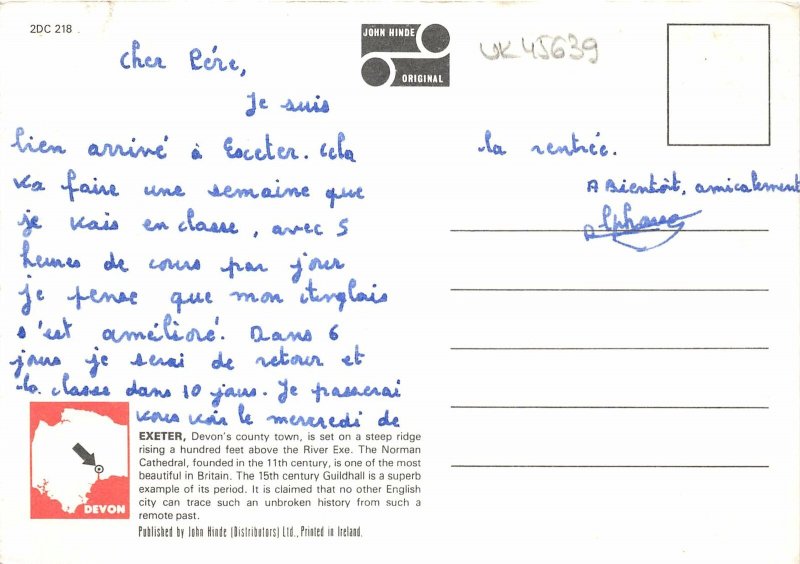 2DC 218
JOHN HINDE
ORIGINAL
UK45639
Cher Père,
Je suis
bien arrivé à Exceter. Cela
va faire une semaine que
je vais en classe, avec 5
heures de cours par jour
je pense que mon Anglais
s'est amélioré. Dans 6
jours je serai de retour et
la classe dans 10 jours. Je passerai
vous voir le mercredi de
la rentrée.
A Bientoit, amicalement
Alphonse
EXETER, Devon's county town, is set on a steep ridge
rising a hundred feet above the River Exe. The Norman
Cathedral, founded in the 11th century, is one of the most
beautiful in Britain. The 15th century Guildhall is a superb
example of its period. It is claimed that no other English
city can trace such an unbroken history from such a
remote past.
DEVON
Published by John Hinde (Distributors) Ltd., Printed in Ireland.